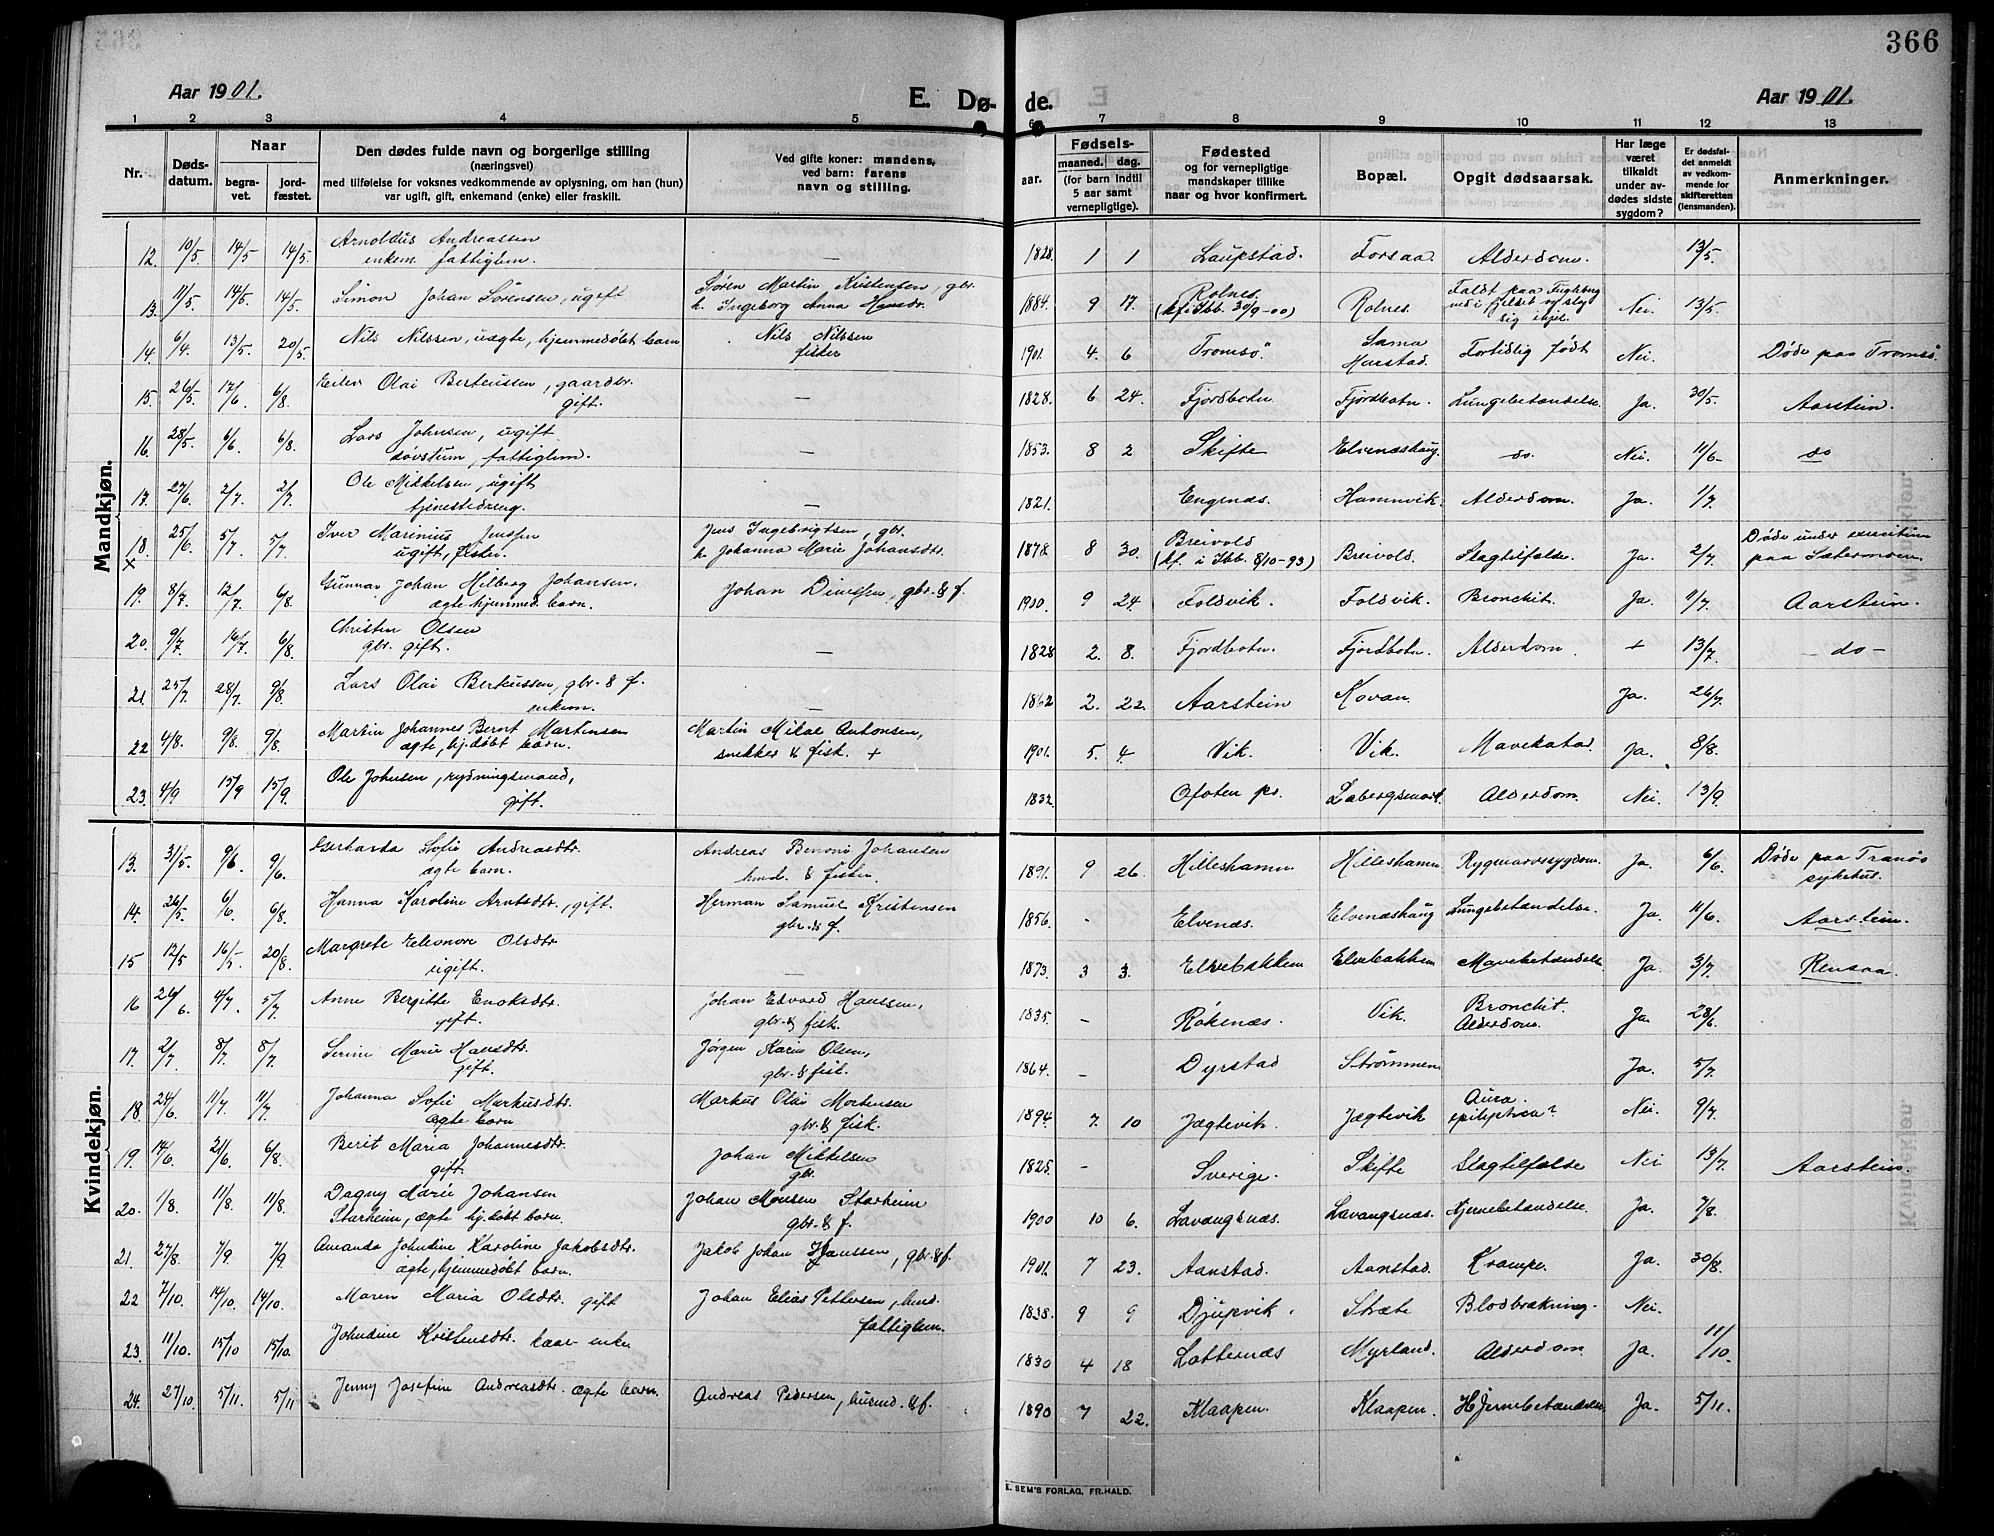 366
Aar 1901.
E. Dø- de.
Aar 1901.
1 2 3 4 5 6 7 8 9 10 11 12 13
Nr. Døds-datum. Naar begra-vet. jord-fæstet. Den dødes fulde navn og borgerlige stilling (næringsvei) med tilføielse for voksnes vedkommende av oplysning, om han (hun) var ugift, gift, enkemand (enke) eller fraskilt. Ved gifte koner: mandens, ved barn: farens navn og stilling. Fødsels- aar. maaned. dag. (for barn indtil 5 aar samt vernepligtige). Fødested og for vernepligtige mandskaper tillike naar og hvor konfirmert. Bopæl. Opgit dødsaarsak. Har læge været tilkaldt under av-dødes sidste sygdom? Er dødsfal-det anmeldt av vedkom-mende for skifteretten (lensmanden). Anmerkninger.
Mandkjøn.
12. 10/5. 14/5 14/5. Arnoldus Andreassen enkem. fattiglem. — 1828. 1 1 Laupstad. Forsaa. Alderdom. 13/5.
13. 11/5 14/5 14/5. Simon Johan Sørensen, ugift Søren Martin Kristensen, gbr. h. Ingeborg Anna Hansdr. 1884. 9 17. Rolnes. (kf. i Ibb. 30/9-00) Rolnes. Faldt paa ned i fjeldet og slog sig ihjel. Nei. 13/5.
14. 6/4. 13/5 20/5. Nils Nilssen, uægte, hjemmedøbt barn Nils Nilssen fisker 1901. 4. 6 Tromsø. Sama Harstad. Fortidlig født Nei. Døde paa Tromsø.
15. 26/5. 17/6 6/8. Eilev Olai Berteussen, gaardbr. gift. — 1828. 6 24. Fjordbotn. Fjordbotn. Lungebetændelse. Ja. 30/5. Aarstein.
16. 28/5. 6/6 6/8. Lars Johnsen, ugift. døvstum, fattiglem. — 1853. 8 2 Skifte Elvenæshaug. do. Nei. 11/6- do
17. 27/6. 2/7. 2/7. Ole Mikkelsen, ugift tjenestedreng. — 1821. Engenæs. Hamnvik. Alderdom. Ja. 1/7.
18 x 25/6. 5/7. 5/7. Iver Marinius Jenssen ugift, fisker. Jens Ingebrigtsen, gbr. h. Johanna Marie Johansdtr. 1878. 8 30. Breivold (kf. i Ibb. 8/10-93) Breivold. Slagtilfælde. Ja. 2/7. Døde under exercitien paa Sætermoen.
19. 8/7. 12/7. 6/8. Gunnar Johan Hilberg Johansen. ægte hjemmed. barn. Johan Dinessen, gbr. & f. 1900. 9 24 Foldvik. Foldvik. Bronchit. Ja. 9/7. Aarstein.
20. 9/7. 16/7. 6/8. Christen Olsen gbr. gift. — 1828 2. 8. Fjordbotn. Fjordbotn. Alderdom. + 13/7. - do -
21. 25/7. 28/7. 9/8. Lars Olai Berteussen, gbr. & f. enkem. — 1862 2. 22. Aarstein Kovan. Ja. 26/7.
22 4/8. 9/8. 9/8. Martin Johannes Bernt Martinsen ægte, hj.døbt barn. Martin Mikal Antonsen, snekker & fisk. + 1901. 5. 4. Vik. Vik. Mavekatar. Ja. 8/8.
23. 4/9 15/9 15/9. Ole Johnsen, rydningsmand, gift. 1832. Ofoten pr. Labergsmark. Alderdom. Nei. 13/9.
Kvindekjøn.
13. 31/5. 9/6 9/6. Gerharda Sofie Andreasdtr. ægte barn. Andreas Benoni Johansen husb. & fisker. 1891. 9 26. Hilleshamn. Hilleshamn. Rygmarvssygdom. Ja. 6/6. Døde paa Tranøs sykehus.
14. 26/5. 6/6. 6/8. Hanna Karoline Arntsdtr., gift. Herman Samuel Kristensen gbr. & f. 1856. - Elvenæs. Elvenæshaug Lungebetændelse. Ja. 11/6. Aarstein.
15 12/5 16/5. 20/8. Margrete Eleonore Olsdtr ugift. — 1873. 3 3. Elvebakken Elvebakken Mavebetændelse Ja. 3/7. Rensaa.
16 26/6. 4/7. 5/7. Anne Bergitte Enoksdtr. gift. Johan Edvard Hanssen, gbr. & fisk. 1835. - Røkenæs. Vik. Bronchit. Alderdom. Ja. 28/6.
17. 2/7. 8/7. 8/7. Serine Marie Hansdtr. gift. Jørgen Karius Olsen, gbr. & fisk. 1864. - Dyrstad Strømmen Ja. 5/7.
18 24/6. 11/7. 11/7. Johanna Sofie Markusdtr. ægte barn Markus Olai Mortensen gbr. & fisk. 1894. 7. 10 Jægtevik. Jægtevik Aura epileptica? Nei. 9/7.
19. 14/6. 21/6. 6/8. Berit Maria Johannesdtr. gift. Johan Mikkelsen gbr. 1825. - Sverige. Skifte Slagtilfælde Nei. 13/7. Aarstein.
20. 1/8. 11/8. 11/8. Dagny Marie Johansen Starheim, ægte hj.døbt barn. Johan Monsen Starheim gbr. & f. 1900 10 6. Lavangsnæs. Lavangsnæs. Hjernebetændelse. Ja. 7/8.
21. 27/8. 7/9. 7/9. Amanda Johndine Karoline Jakobsdtr. ægte, hjemmedøbt barn. Jakob Johan Hanssen, gbr. & f. 1901. 7 23. Aanstad. Aanstad. Krampe. Ja. 30/8.
22 7/10. 14/10. 14/10. Maren Maria Olsdtr. gift Johan Elias Pettersen, husd. fattiglem. 1838. 9 9 Djupvik. Stræte Blodbrækning. Nei.
23. 11/10. 15/10 15/10. Johndine Kristensdtr. kaar enke 1830 4 18 Lotternæs Myrland. Alderdom. Ja. 11/10.
24. 27/10. 5/11. 5/11 Jenny Josefine Andreasdtr. ægte barn. Andreas Pedersen, husmd. & f. 1890 7 22. Klaapen. Klaapen. Hjernebetændelse Ja. 5/11.
E. SEM'S FORLAG, FR.HALD.